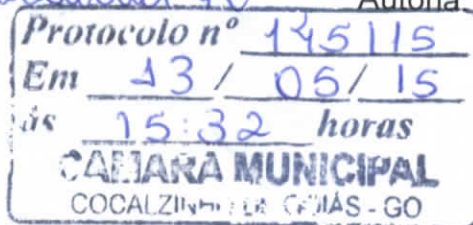 Autoria
Protocolo nº 145115
Em 13/ 05/ 15
às 15:32 horas
CAMARA MUNICIPAL
COCALZINHO DE GOIÁS - GO